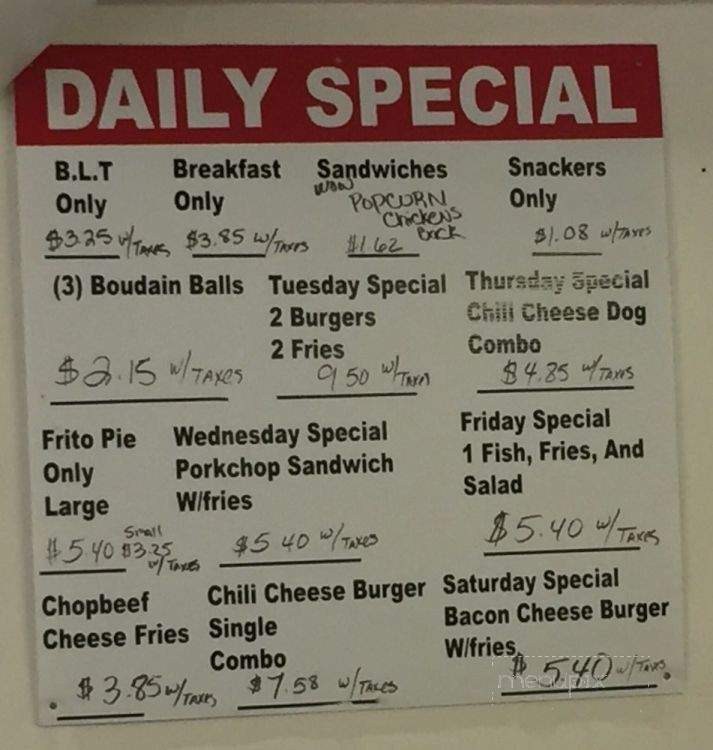 DAILY SPECIAL
B.L.T
Only
$3.25 w/TAXES
Breakfast
Only
$3.85 w/TAXES
Sandwiches
POPCORN
Chickens
$1.62
Snackers
Only
$1.08 w/TAXES
(3) Boudain Balls
$2.15 w/TAXES
Tuesday Special
2 Burgers
2 Fries
9.50 w/TAXES
Thursday Special
Chili Cheese Dog
Combo
$4.85 w/TAXES
Frito Pie
Only
Large
$5.40 Small $3.25
w/TAXES
Wednesday Special
Porkchop Sandwich
W/fries
$5.40 w/TAXES
Friday Special
1 Fish, Fries, And
Salad
$5.40 w/TAXES
Chopbeef
Cheese Fries
$3.85 w/TAXES
Chili Cheese Burger
Single
Combo
$7.58 w/TAXES
Saturday Special
Bacon Cheese Burger
W/fries
$5.40 w/TAXES
menupix